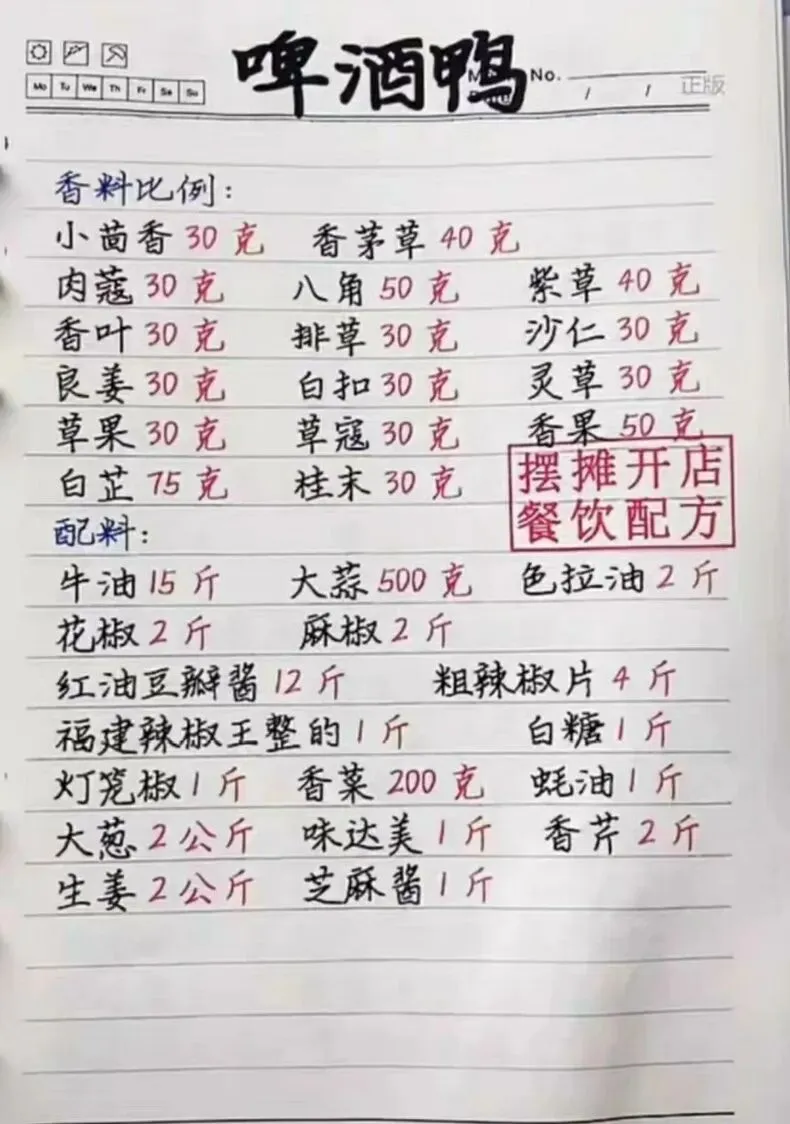 啤酒鸭
No.
正版
Mo Tu We Th Fr Sa Su
/ /
香料比例:
小茴香 30 克 香茅草 40 克
肉蔻 30 克 八角 50 克 紫草 40 克
香叶 30 克 排草 30 克 沙仁 30 克
良姜 30 克 白扣 30 克 灵草 30 克
草果 30 克 草寇 30 克 香果 50 克
白芷 75 克 桂末 30 克
摆摊开店
餐饮配方
配料:
牛油 15 斤 大蒜 500 克 色拉油 2 斤
花椒 2 斤 麻椒 2 斤
红油豆瓣酱 12 斤 粗辣椒片 4 斤
福建辣椒王整的 1 斤 白糖 1 斤
灯笼椒 1 斤 香菜 200 克 蚝油 1 斤
大葱 2 公斤 味达美 1 斤 香芹 2 斤
生姜 2 公斤 芝麻酱 1 斤